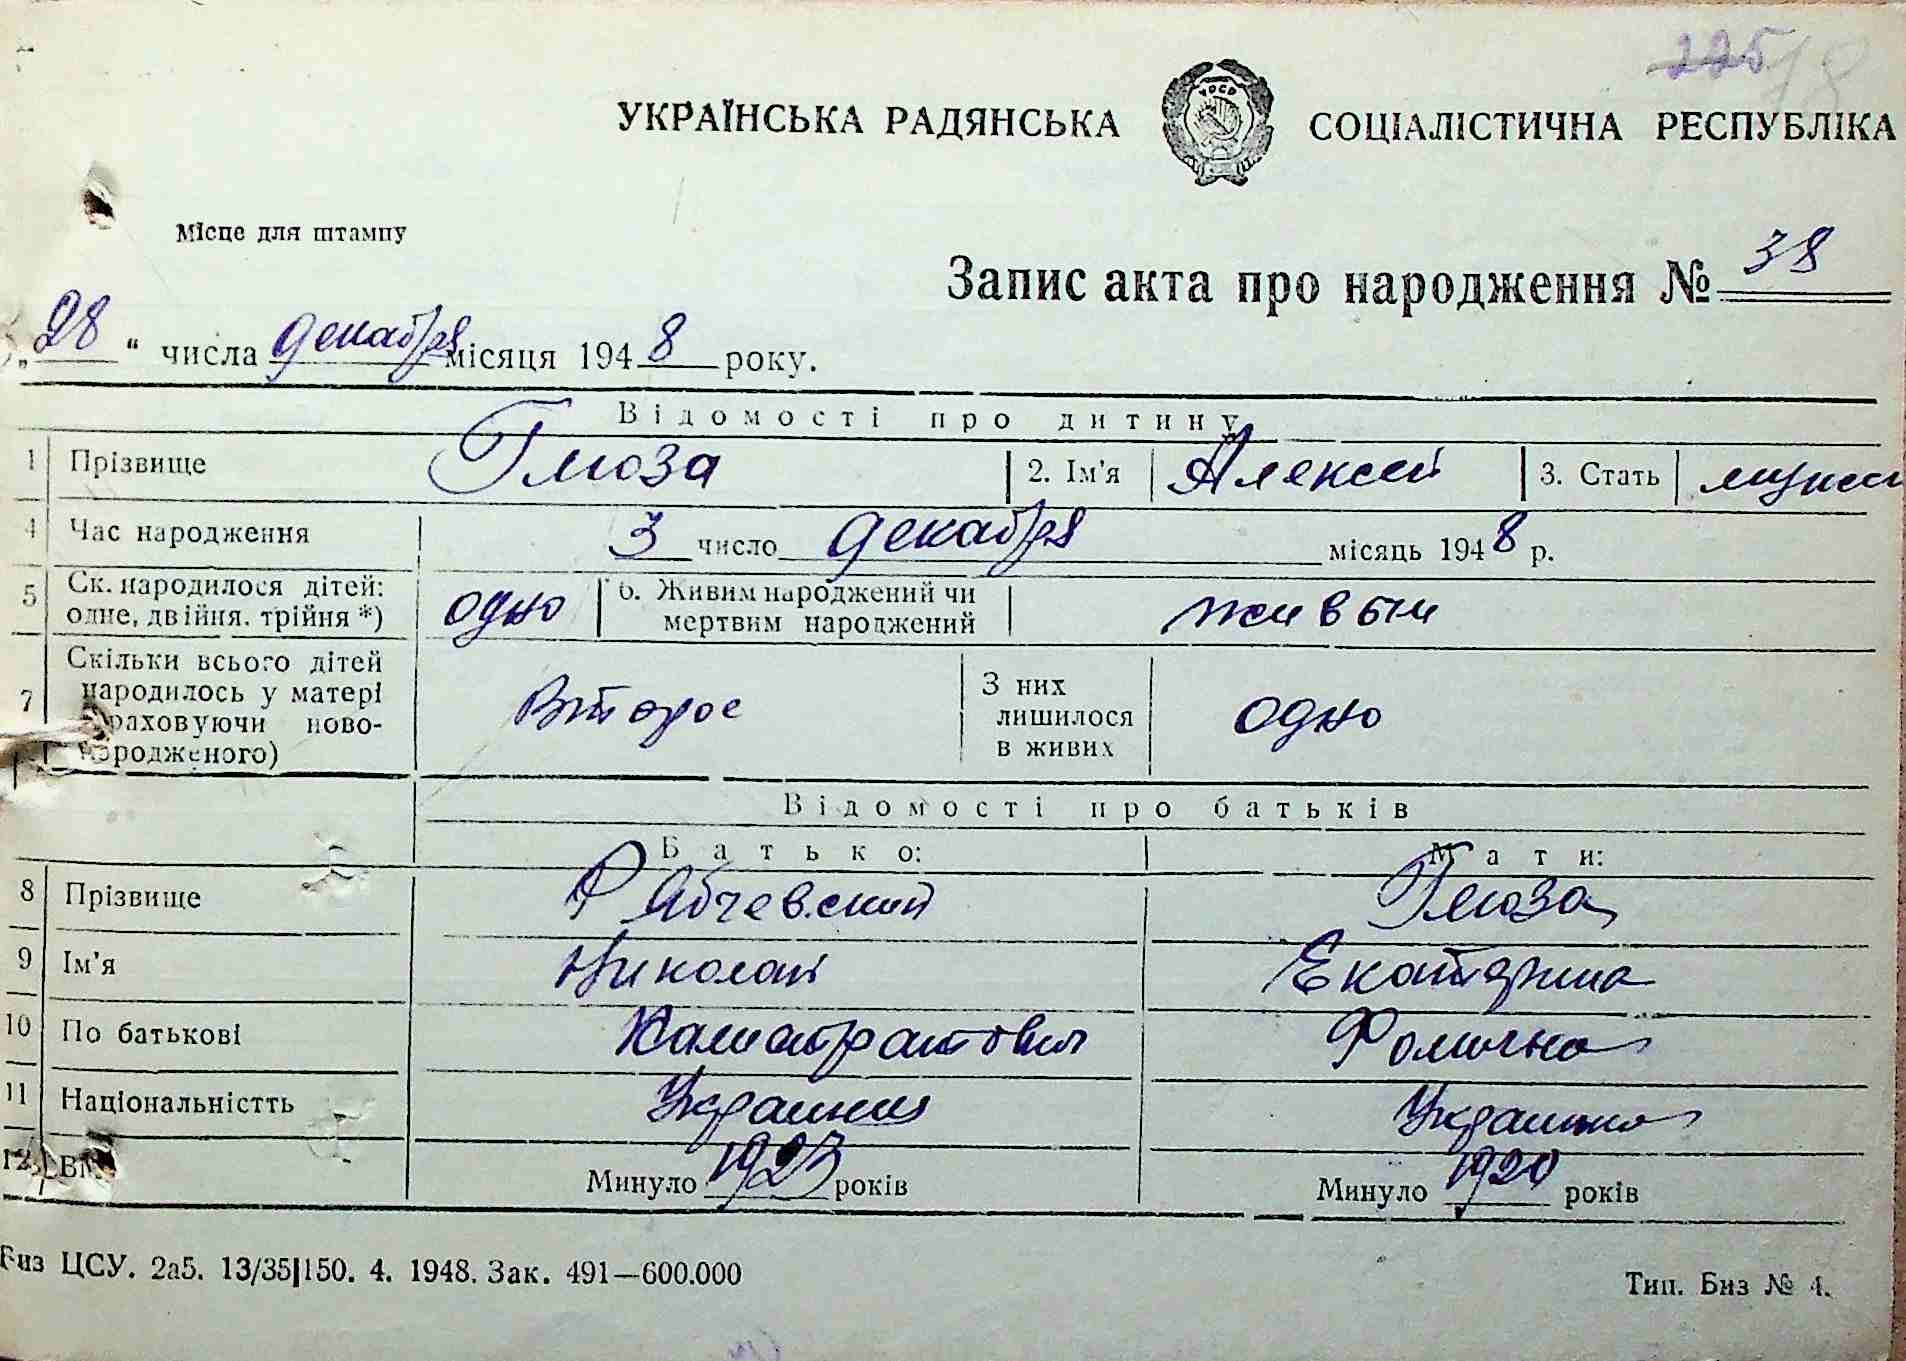 225 18
УКРАЇНСЬКА РАДЯНСЬКА СОЦІАЛІСТИЧНА РЕСПУБЛІКА
УРСР
Місце для штампу
Запис акта про народження № 38
„28“ числа декабря місяця 1948 року.
Відомості про дитину
1 Прізвище Глюза 2. Ім'я Алексей 3. Стать мужск
4 Час народження 3 число декабря місяць 1948 р.
5 Ск. народилося дітей: одно 6. Живим народжений чи живым
одне, двійня, трійня *) мертвим народжений
7 Скільки всього дітей народилось у матері второе З них лишилося в живих одно
раховуючи ново-
народженого)
Відомості про батьків
Батько: Мати:
8 Прізвище Рябчевский Глюза
9 Ім'я Николай Екатерина
10 По батькові Калистратович Фомична
11 Національністть Украинец Украинка
12 Ві Минуло 1923 років Минуло 1920 років
Биз ЦСУ. 2а5. 13/35|150. 4. 1948. Зак. 491—600.000
Тип. Биз № 4.